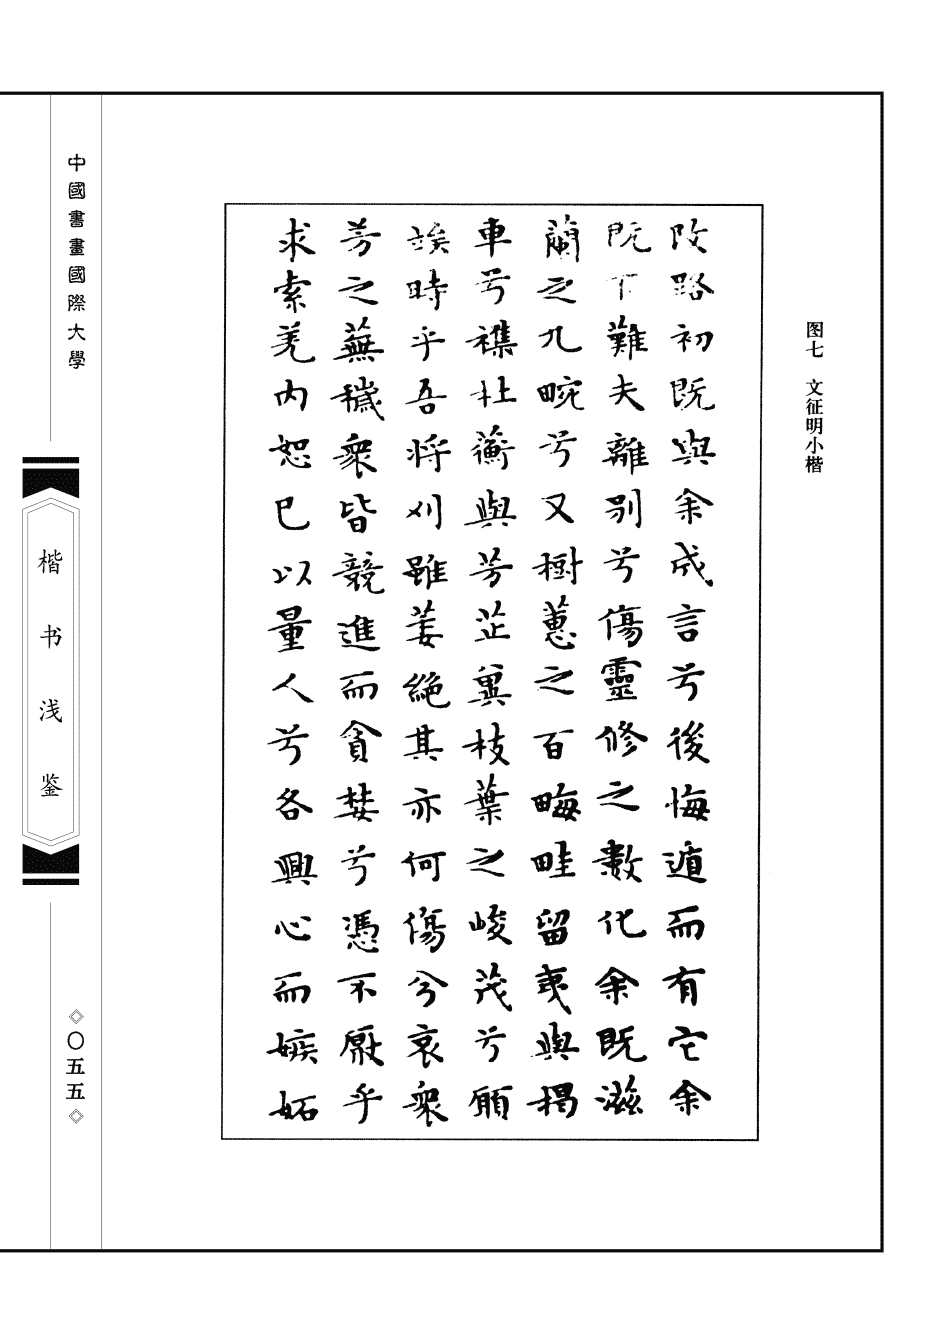 图七 文征明小楷
改路初既與余成言兮後悔遁而有它余
既不難夫離別兮傷靈修之數化余既滋
蘭之九畹兮又樹蕙之百畮畦留夷與揭
車兮襍杜蘅與芳芷兾枝葉之峻茂兮願
竢時乎吾將刈雖萎絕其亦何傷兮哀衆
芳之蕪穢衆皆競進而貪婪兮憑不厭乎
求索羌内恕己以量人兮各興心而嫉妬
中國書畫國際大學
楷书浅鉴
◇〇五五◇